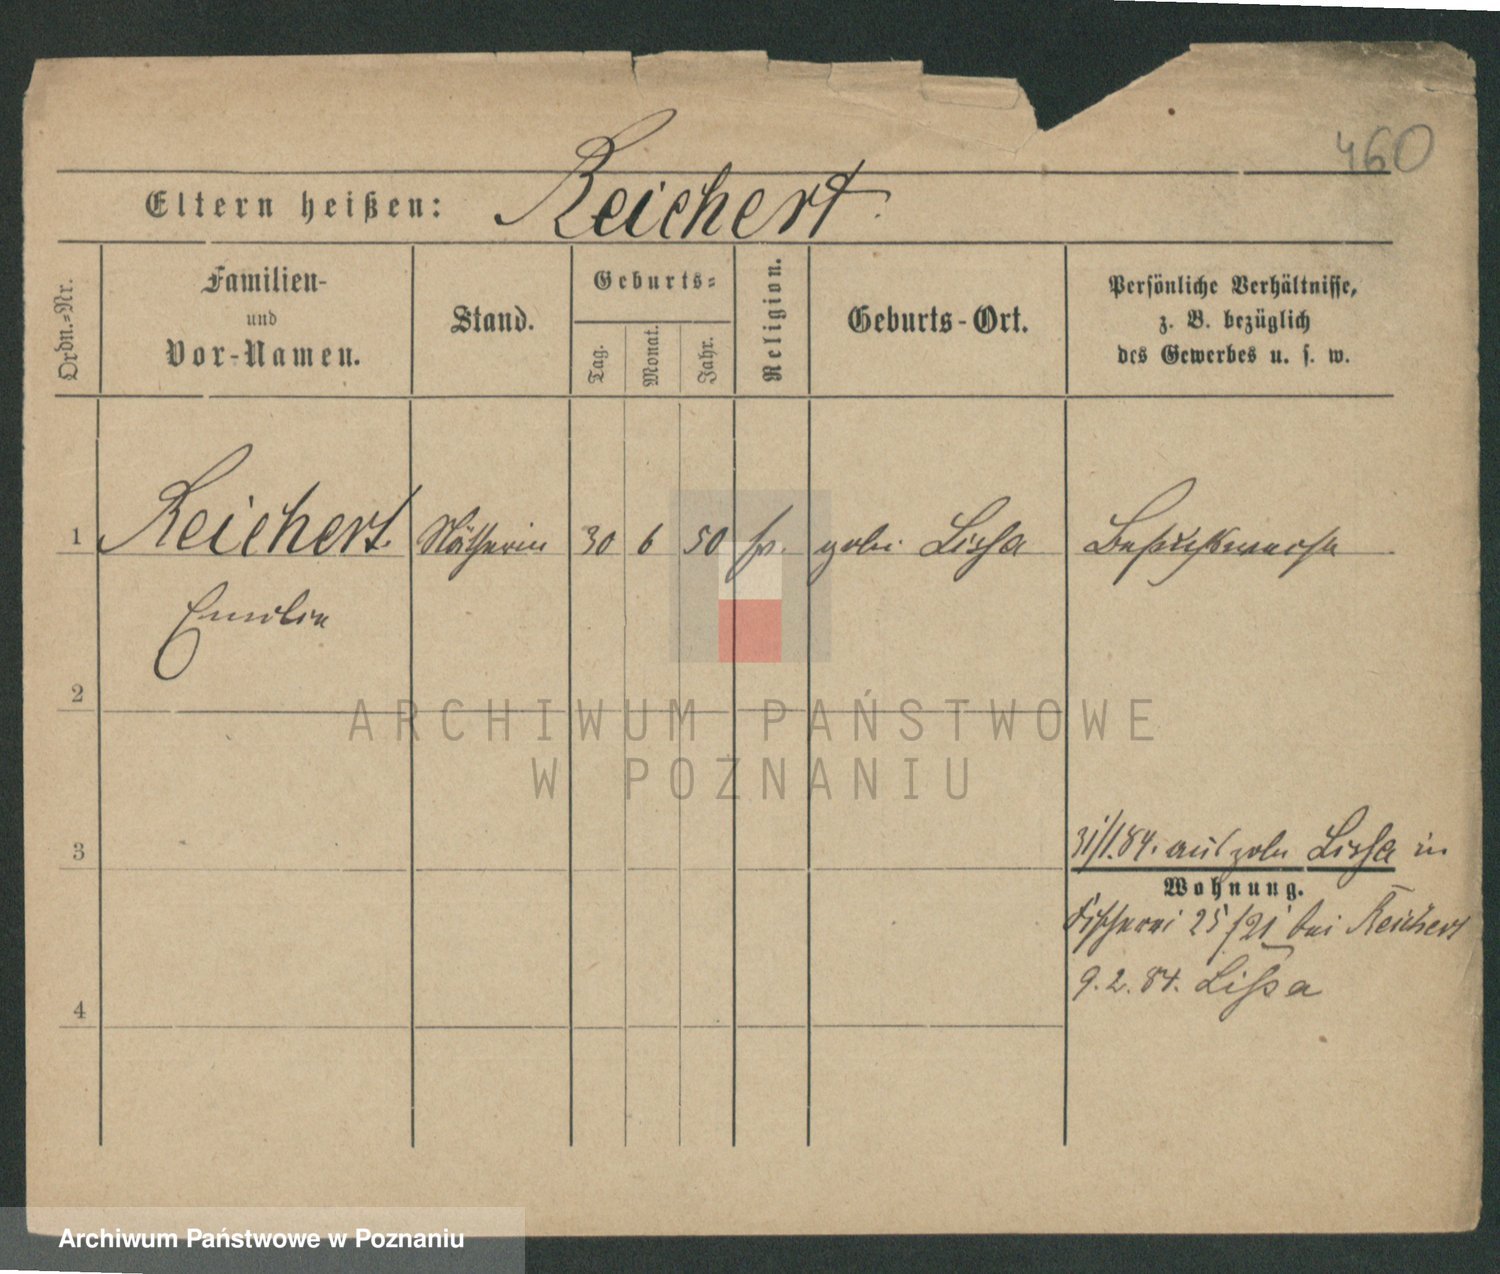 460
Eltern heißen: Reichert
Ordn.-Nr.
Familien-
und
Vor-Namen.
Stand.
Geburts-
Tag.
Monat.
Jahr.
Religion.
Geburts-Ort.
Persönliche Verhältnisse,
z. B. bezüglich
des Gewerbes u. s. w.
1 Reichert. Nätherin 30 6 50 Lissa
Emilie
2
ARCHIWUM PAŃSTWOWE
W POZNANIU
3
31/1.84. aus Lissa in
Wohnung.
Fischerei 25/21 bei Reichert
9.2.84. Lissa
4
Archiwum Państwowe w Poznaniu